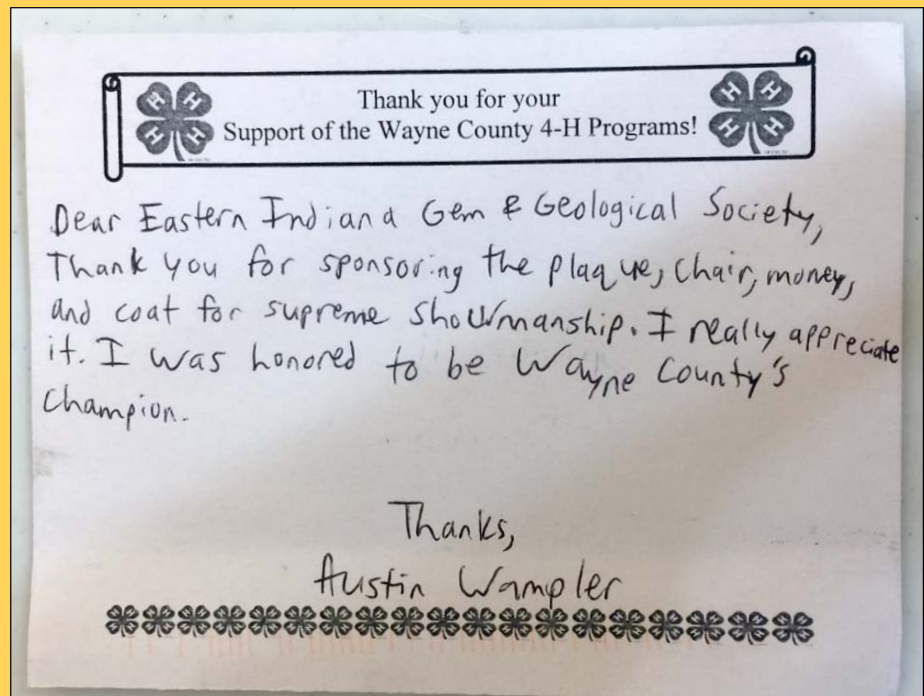 Thank you for your
Support of the Wayne County 4-H Programs!
Dear Eastern Indiana Gem & Geological Society,
Thank you for sponsoring the plaque, chair, money,
and coat for supreme showmanship. I really appreciate
it. I was honored to be Wayne County's
champion.
Thanks,
Austin Wampler